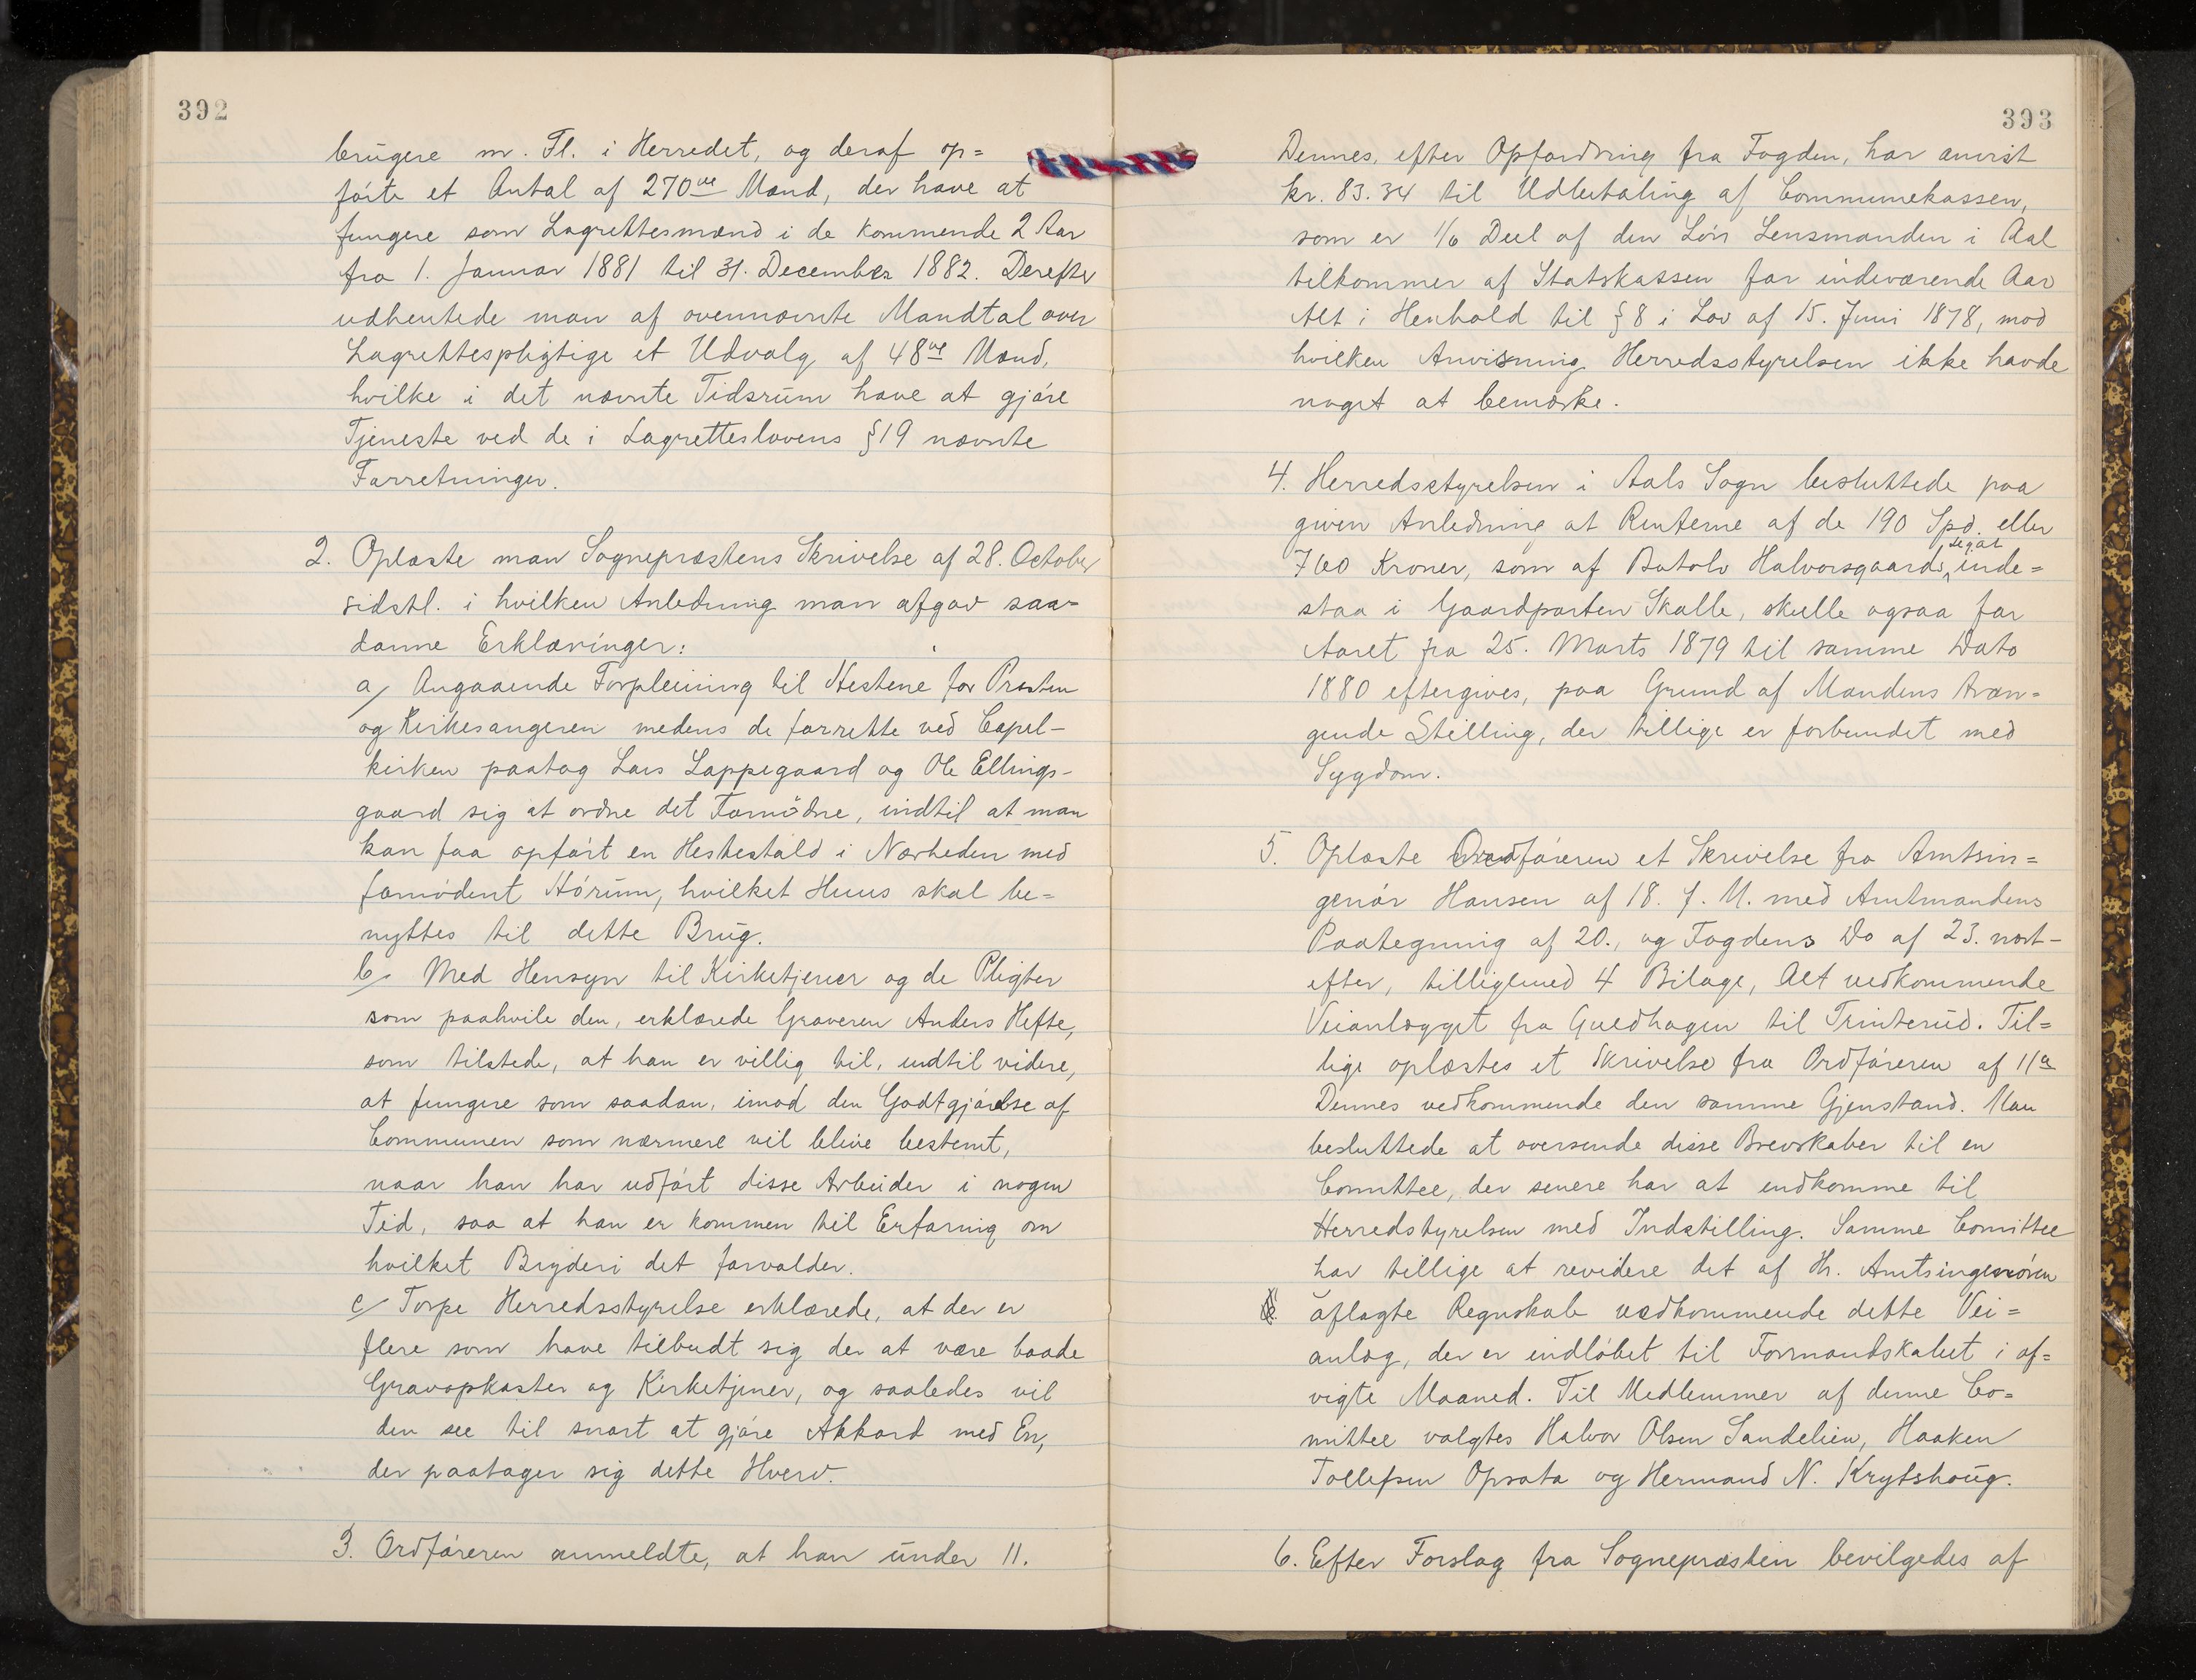 392
brugere m. Fl. i Herredet, og deraf op=
førte et Antal af 270ve Mænd, der have at
fungere som Lagrettesmænd i de kommende 2 Aar
fra 1. Januar 1881 til 31. December 1882. Derefter
udhentede man af ovennævnte Mandtal over
Lagrettespligtige et Udvalg af 48ve Mænd,
hvilke i det nævnte Tidsrum have at gjøre
Tjeneste ved de i Lagretteslovens §19 nævnte
Forretninger.
2. Oplæste man Sognepræstens Skrivelse af 28. October
sidstl. i hvilken Anledning man afgav saa-
danne Erklæringer:
a/ Angaaende Forpleining til Hestene for Præsten
og Kirkesangeren medens de forrette ved Capel-
kirken paatog Lars Lappegaard og Ole Ellings-
gaard sig at ordne det Fornødne, indtil at man
kan faa opført en Hestestald i Nærheden med
fornødent Hørum, hvilket Huus skal be=
nyttes til dette Brug.
b/ Med Hensyn til Kirketjener og de Pligter
som paahvile den, erklærede Graveren Anders Hefte,
som tilstede, at han er villig til, indtil videre,
at fungere som saadan, imod den Godtgjørelse af
Communen som nærmere vil blive bestemt,
naar han har udført disse Arbeider i nogen
Tid, saa at han er kommen til Erfaring om
hvilket Bryderi det forvolder.
c/ Torpe Herredsstyrelse erklærede, at der er
flere som have tilbudt sig der at være baade
Gravopkaster og Kirketjener, og saaledes vil
den see til snart at gjøre Akkord med En,
der paatager sig dette Hverv.
3. Ordføreren anmeldte, at han under 11.
393
Dennes, efter Opfordring fra Fogden, har anvist
kr. 83.34 til Udbetaling af Communekassen,
som er 1/6 Deel af den Løn Lensmanden i Aal
tilkommer af Statskassen for indeværende Aar
Alt i Henhold til §8 i Lov af 15. Juni 1878, mod
hvilken Anvisning Herredsstyrelsen ikke havde
noget at bemærke.
4. Herredsstyrelsen i Aals Sogn besluttede paa
given Anledning at Renterne af de 190 Spd. eller
760 Kroner, som af Botolv Halvorsgaards Legat inde=
staa i Gaardparten Skalle, skulle ogsaa for
Aaret fra 25. Marts 1879 til samme Dato
1880 eftergives, paa Grund af Mandens træn-
gende Stilling, der tillige er forbundet med
Sygdom.
5. Oplæste Ordføreren et Skrivelse fra Amtsin=
geniør Hansen af 18. f. M. med Amtmandens
Paategning af 20., og Fogdens Do af 23. næst-
efter, tilligemed 4 Bilage, Alt vedkommende
Veianlægget fra Guldhagen til Trinterud. Til=
lige oplæstes et Skrivelse fra Ordføreren af 11te
Dennes vedkommende den samme Gjenstand. Man
besluttede at oversende disse Brevskaber til en
Comittee, der senere har at indkomme til
Herredstyrelsen med Indstilling. Samme Comittee
har tillige at revidere det af Hr. Amtsingeniøren
aflagte Regnskab vedkommende dette Vei=
anlæg, der er indløbet til Formandskabet i af=
vigte Maaned. Til Medlemmer af denne Co=
mittee valgtes Halvor Olsen Sandelien, Haaken
Tollefsen Opsata og Hermand N. Krytshoug.
6. Efter Forslag fra Sognepræsten bevilgedes af